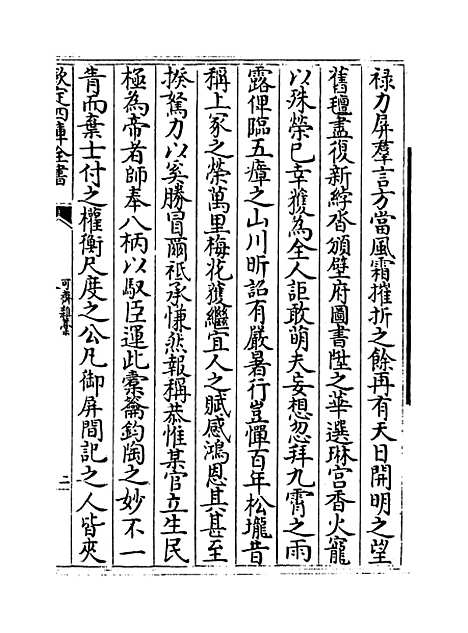 祿力屏羣言方當風霜摧折之餘再有天日開明之望
舊氊盡復新綍沓頒壁府圖書陞之華選琳宮香火寵
以殊榮已幸獲為全人詎敢萌夫妄想忽拜九霄之雨
露俾臨五瘴之山川昕詔有嚴暑行豈憚百年松壠昔
稱上冢之榮萬里梅花獲繼宜人之賦感鴻恩其甚至
揆駑力以奚勝冒爾祗承慊然報稱恭惟某官立生民
極為帝者師奉八柄以馭臣運此橐籥鈞陶之妙不一
眚而棄士付之權衡尺度之公凡御屏間記之人皆夾
欽定四庫全書
可齋雜藁
二